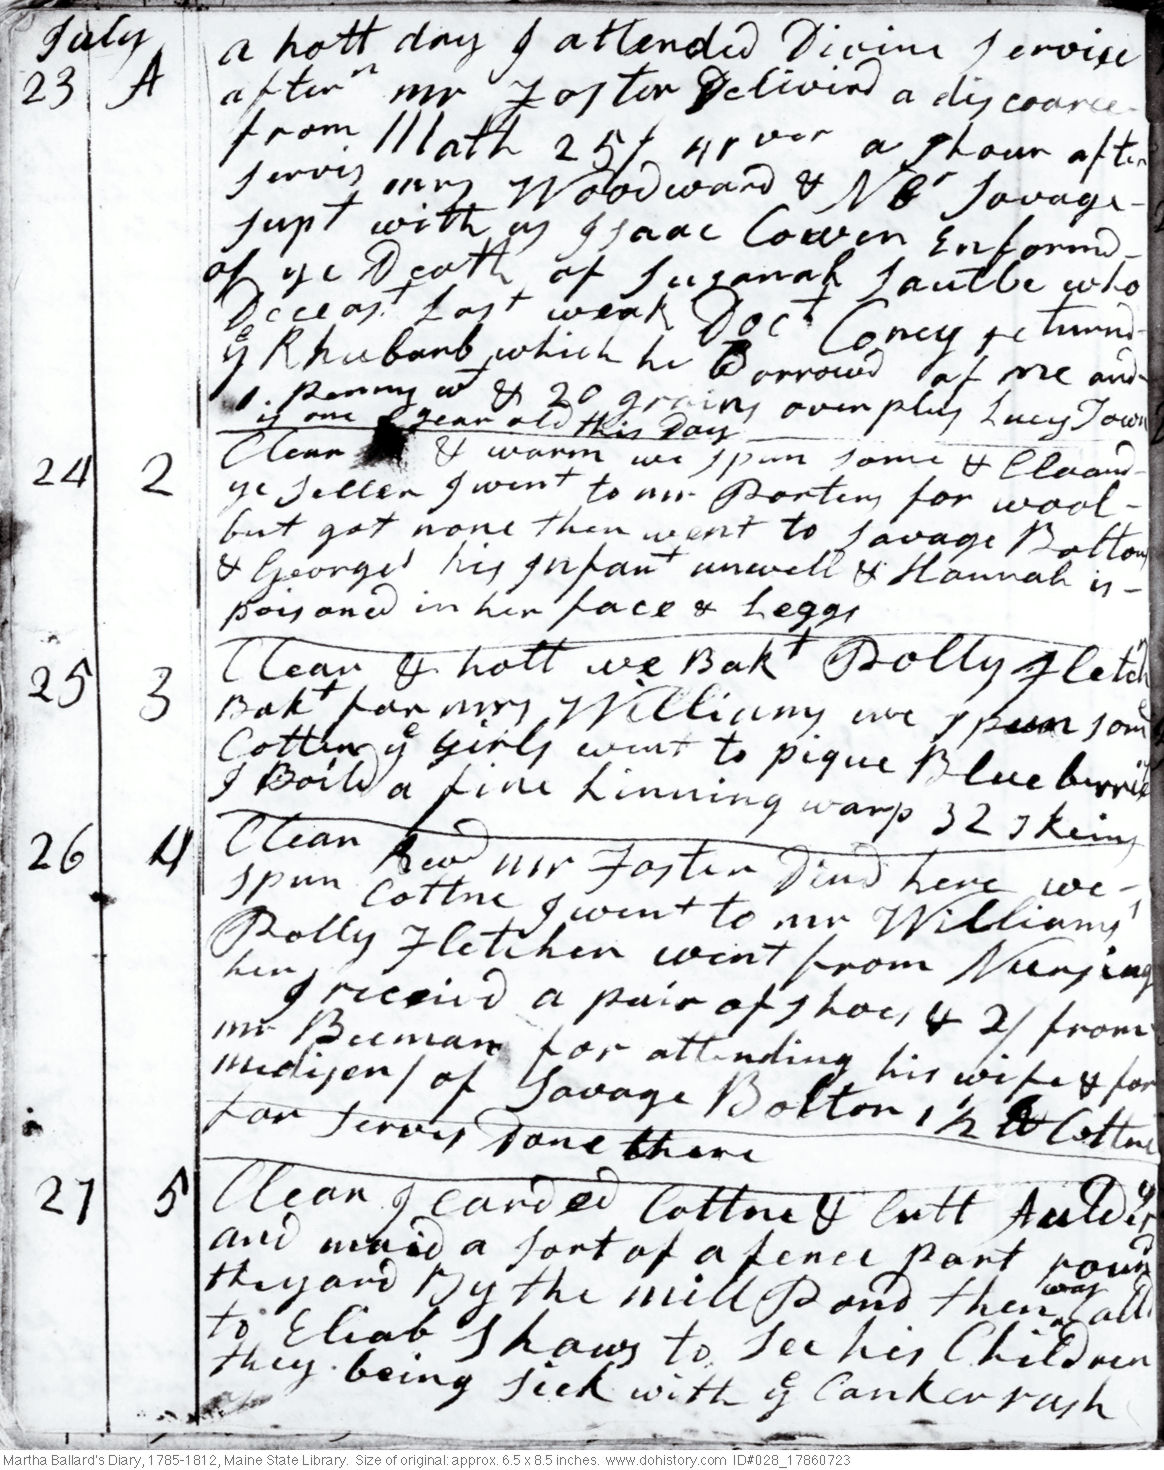 July
23 A a hott day I attended Divine Servise
aftern mr Foster Delivird a discource
from Math 25t 41 ver a Shour after
servis mrs Woodward & Nbr Savage
supt with us Isaac Cowen Enformd
of ye Death of Suzanah Sautle who
Deceast Last weak Doct Coney returnd
ye Rhubarb which he Borrowd of me and
1. Penny wt & 20 grains overplus Lucy Town
is one year old this Day
24 2 Clear & warm we spun some & Cleand
ye Seller I went to mr Porters for wool
but got none then went to Savage Boltons
& Georges his Infant unwell & Hannah is
poisoned in her face & Leggs
25 3 Clear & hott we Bakt Polly Fletchr
Bakt for mrs Williams we spun som
Cotten ye Girls went to pique Blueberries
I Boild a fine Linning warp 32 skeins
26 4 Clear Revd mr Foster Dind here we
spun Cottne I went to mr Williams'
Polly Fletcher went from Nursing
her I receivd a pair of Shoes & 2/ from
mr Beeman for attending his wife & for
medisen / of Savage Bolton 1 1/2 lb Cottne
for Servis Done there
27 5 Clear I Carded Cottne & Cutt Aulders
and maid a sort of a fence part round
the yard By the mill Pond then was Calld
to Eliab Shaws to see his Children
they being sick with ye Canker rash
Martha Ballard's Diary, 1785-1812, Maine State Library. Size of original: approx. 6.5 x 8.5 inches. www.dohistory.com ID#028_17860723